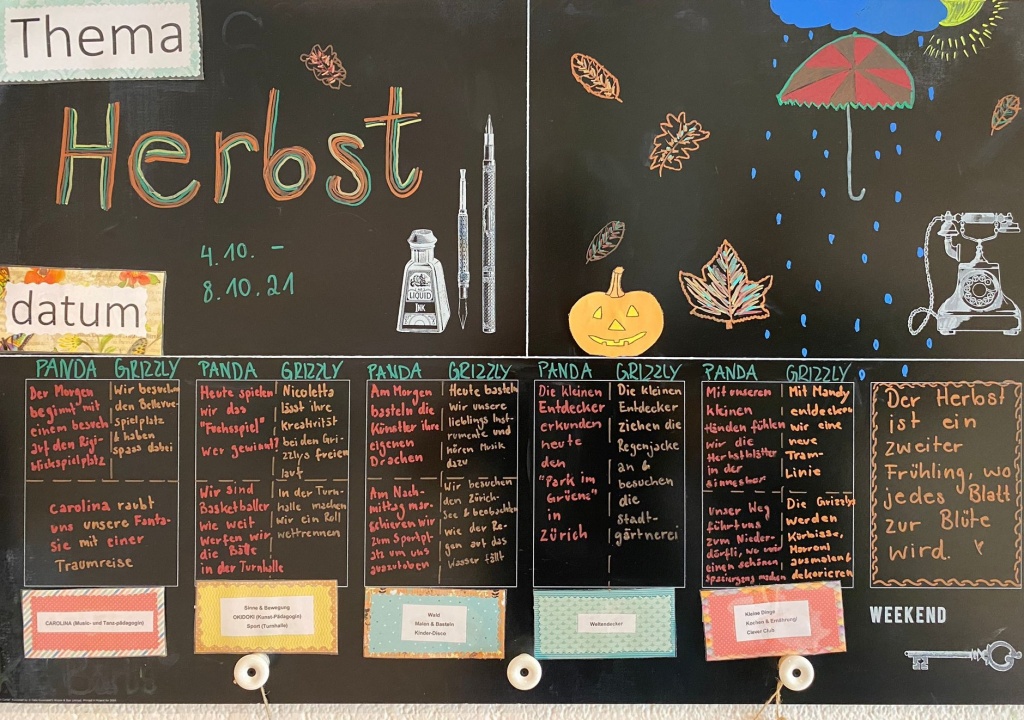 Thema
Herbst
4.10. -
8.10.21
datum
LIQUID
INK
PANDA GRIZZLY
Der Morgen
beginnt mit
einem besuch
auf den Rigi-
blickspielplatz
Wir besuchen
den Bellevue-
spielplatz
& haben
spass dabei
carolina raubt
uns unsere Fanta-
sie mit einer
Traumreise
CAROLINA (Music- und Tanz-pädagogin)
PANDA GRIZZLY
Heute spielen
wir das
"Fuchsspiel"
Wer gewinnt?
Nicoletta
lässt ihre
Kreativität
bei den Gri-
zzlys freien
lauf
Wir sind
Basketballer
wie weit
werfen wir
die Bälle
in der Turnhalle
In der Turn-
halle machen
wir ein Roll
wettrennen
Sinne & Bewegung
OKIDOKI (Kunst-Pädagogin)
Sport (Turnhalle)
PANDA GRIZZLY
Am Morgen
basteln die
Künstler ihre
eigenen
Drachen
Heute basteln
Wir unsere
lieblings Inst-
rumente und
hören Musik
dazu
Am Nach-
mittag mar-
schieren wir
zum Sportpl-
atz um uns
auszutoben
Wir besuchen
den Zürich-
See & beobachten
wie der Re-
gen auf das
Wasser fällt
Wald
Malen & Basteln
Kinder-Disco
PANDA GRIZZLY
Die kleinen
Entdecker
erkunden
heute
den
"Park im
Grüene"
in
Zürich
Die kleinen
Entdecker
ziehen die
Regenjacke
an &
besuchen
die
stadt-
gärtnerei
Weltendecker
PANDA GRIZZLY
Mit unseren
kleinen
Händen fühlen
wir die
Herbstblätter
in der
Mit Mandy
entdecken
wir eine
neue
Tram-
Linie
Unser Weg
führt uns
zum Nieder-
dörfli, wo wir
einen schönen
Spaziergang machen
Die Grizzlys
werden
Kürbisse,
Marroni
ausmalen &
dekorieren
Kleine Dinge
Kochen & Ernährung/
Clever Club
Der Herbst
ist ein
zweiter
Frühling, wo
jedes Blatt
zur Blüte
wird.
WEEKEND